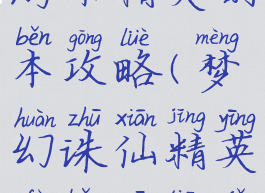 běn gōng lüè mèng
本攻略(梦
huàn zhū xiān jīng yīng
幻诛仙精英